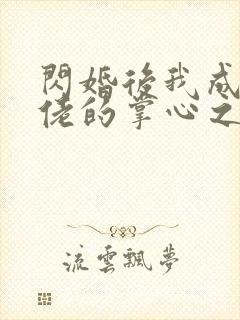 閃婚後我成
佬的掌心之
流雲飄夢